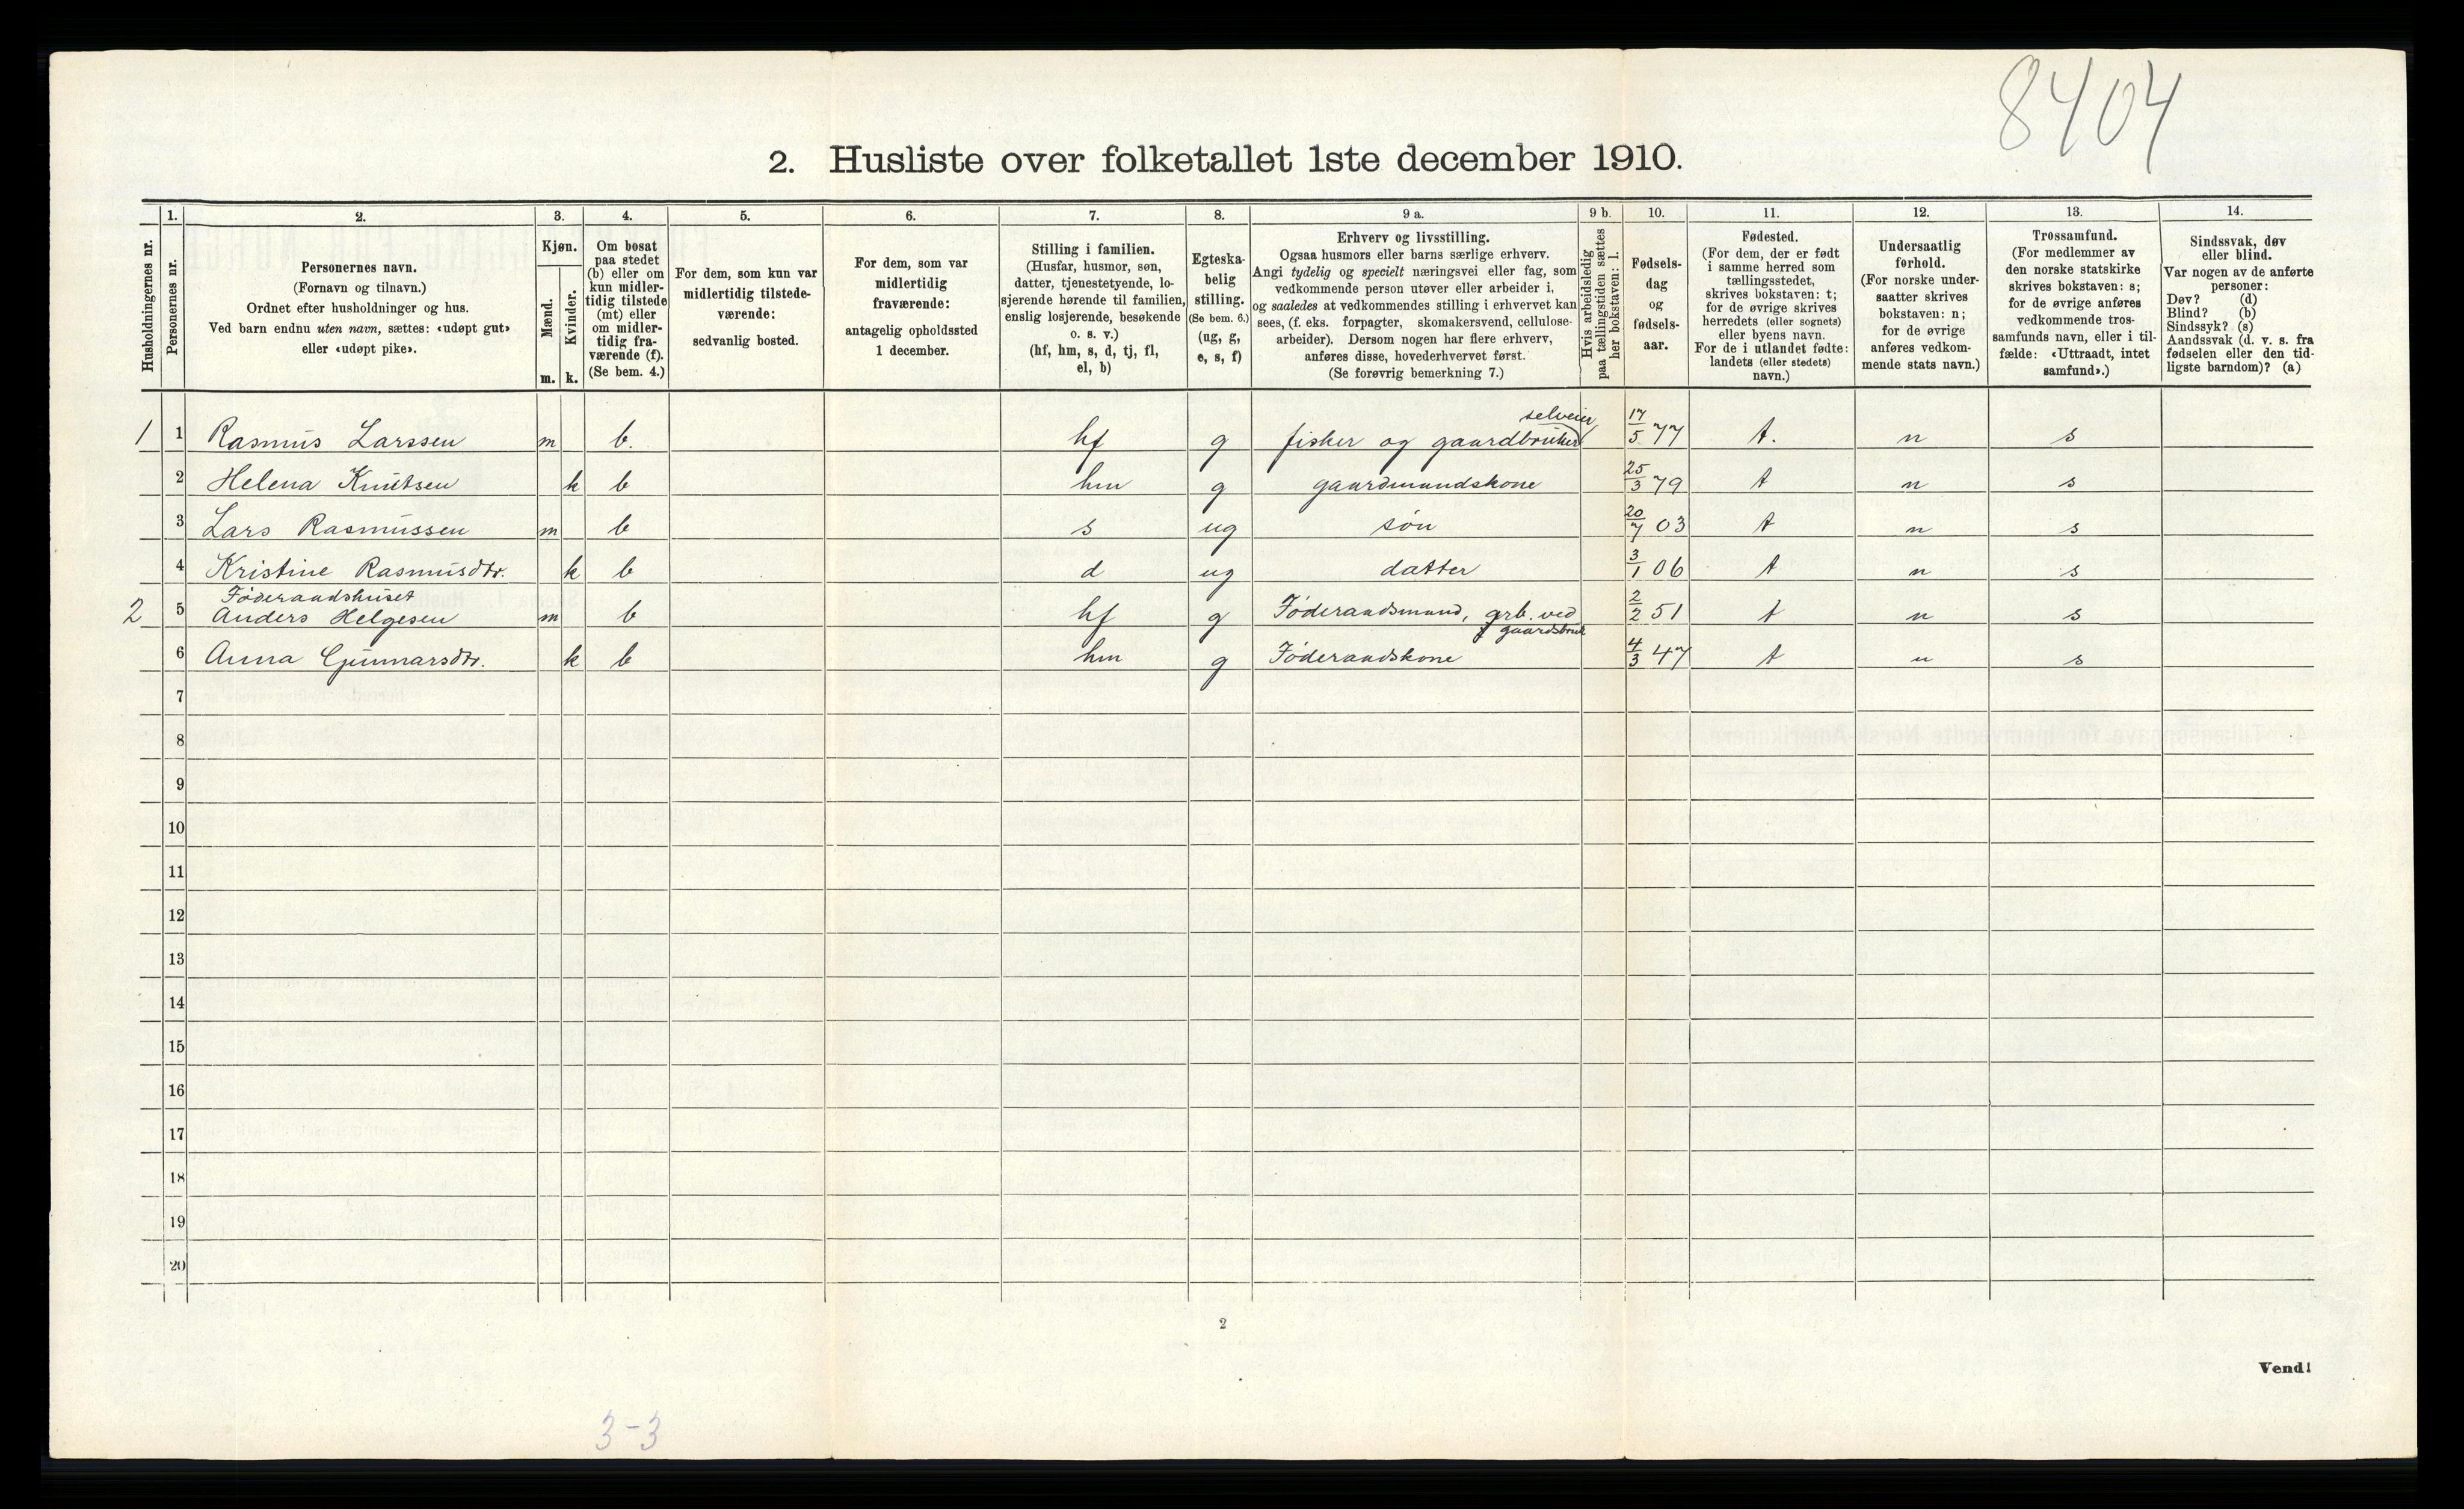 8404
2. Husliste over folketallet 1ste december 1910.
Husholdningernes nr.
1.
Personernes nr.
2.
Personernes navn.
(Fornavn og tilnavn.)
Ordnet efter husholdninger og hus.
Ved barn endnu uten navn, sættes: «udøpt gut»
eller «udøpt pike».
3.
Kjøn.
Mænd.
m.
Kvinder.
k.
4.
Om bosat
paa stedet
(b) eller om
kun midler-
tidig tilstede
(mt) eller
om midler-
tidig fra-
værende (f).
(Se bem. 4.)
5.
For dem, som kun var
midlertidig tilstede-
værende:
sedvanlig bosted.
6.
For dem, som var
midlertidig
fraværende:
antagelig opholdssted
1 december.
7.
Stilling i familien.
(Husfar, husmor, søn,
datter, tjenestetyende, lo-
sjerende hørende til familien,
enslig losjerende, besøkende
o. s. v.)
(hf, hm, s, d, tj, fl,
el, b)
8.
Egteska-
belig
stilling.
(Se bem. 6.)
(ug, g,
e, s, f)
9 a.
Erhverv og livsstilling.
Ogsaa husmors eller barns særlige erhverv.
Angi tydelig og specielt næringsvei eller fag, som
vedkommende person utøver eller arbeider i,
og saaledes at vedkommendes stilling i erhvervet kan
sees, (f. eks. forpagter, skomakersvend, cellulose-
arbeider). Dersom nogen har flere erhverv,
anføres disse, hovederhvervet først.
(Se forøvrig bemerkning 7.)
9 b.
Hvis arbeidsledig
paa tællingstiden sættes
her bokstaven: l.
10.
Fødsels-
dag
og
fødsels-
aar.
11.
Fødested.
(For dem, der er født
i samme herred som
tællingsstedet,
skrives bokstaven: t;
for de øvrige skrives
herredets (eller sognets)
eller byens navn.
For de i utlandet fødte:
landets (eller stedets)
navn.)
12.
Undersaatlig
forhold.
(For norske under-
saatter skrives
bokstaven: n;
for de øvrige
anføres vedkom-
mende stats navn.)
13.
Trossamfund.
(For medlemmer av
den norske statskirke
skrives bokstaven: s;
for de øvrige anføres
vedkommende tros-
samfunds navn, eller i til-
fælde: «Uttraadt, intet
samfund».)
14.
Sindssvak, døv
eller blind.
Var nogen av de anførte
personer:
Døv? (d)
Blind? (b)
Sindssyk? (s)
Aandssvak (d. v. s. fra
fødselen eller den tid-
ligste barndom)? (a)
selveier
1 1 Rasmus Larssen m b. hf g fisker og gaardbruker 17/5 77 t. n s
2 Helena Knutsen k b hm g gaardmandskone 25/3 79 t n s
3 Lars Rasmussen m b s ug søn 20/7 03 t n s
4 Kristine Rasmusdtr. k b d ug datter 3/1 06 t n s
Föderaadshuset
2 5 Anders Helgesen m b hf g Föderaadsmand, grb. ved 2/2 51 t n s
gaardsbruk
6 Anna Gunnarsdtr. k b hm g Föderaadskone 4/3 47 t n s
7
8
9
10
11
12
13
14
15
16
17
18
19
20
2
Vend!
3-3